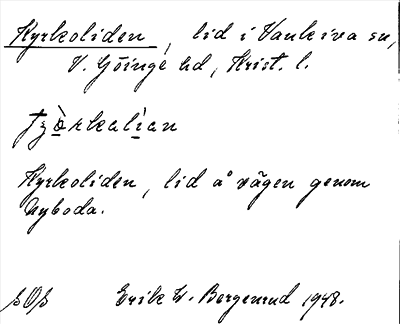 Kyrkoliden, lid i Vankiva sn,
V. Göinge hd, Krist. l.
Kyrkoliden, lid å vägen genom
Nyboda.
SOS Erik W. Bergenrud 1948.